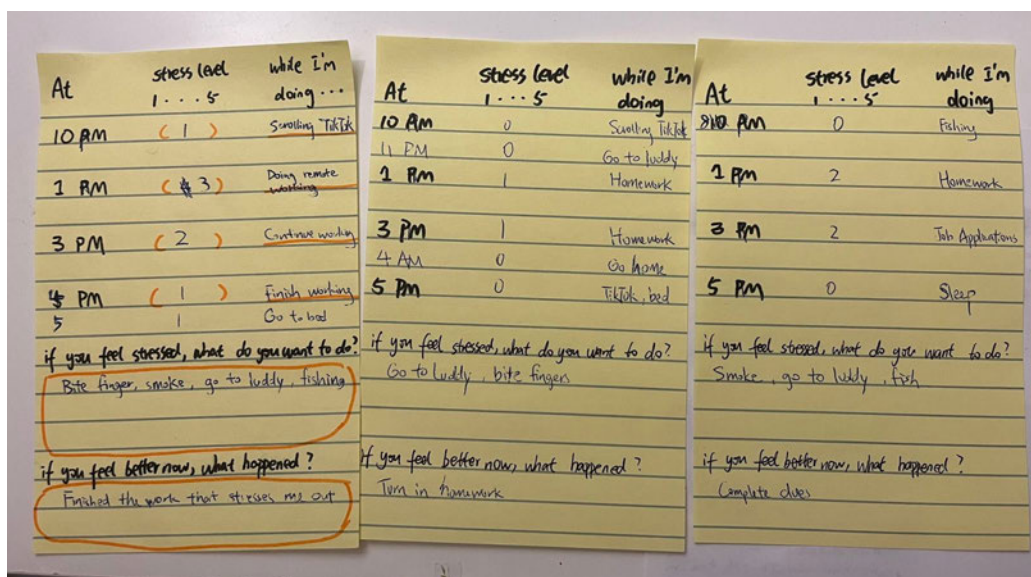 At stress level while I'm
1 . . . 5 doing . . .
10 PM ( 1 ) Scrolling TikTok
1 PM ( 3 ) Doing remote
working
3 PM ( 2 ) Continue working
5 PM ( 1 ) Finish working
5 1 Go to bed
if you feel stressed, what do you want to do?
Bite finger, smoke, go to luddy, fishing
if you feel better now, what happened?
Finished the work that stresses me out
At stress level while I'm
1 . . . 5 doing
10 AM 0 Scrolling TikTok
11 PM 0 Go to luddy
1 PM 1 Homework
3 PM 1 Homework
4 AM 0 Go home
5 PM 0 TikTok, bed
if you feel stressed, what do you want to do?
Go to Luddy, bite fingers
if you feel better now, what happened?
Turn in homework
At stress level while I'm
1 . . . 5 doing
10 PM 0 Fishing
1 PM 2 Homework
3 PM 2 Job Applications
5 PM 0 Sleep
if you feel stressed, what do you want to do?
Smoke, go to luddy, fish
if you feel better now, what happened?
Complete dues